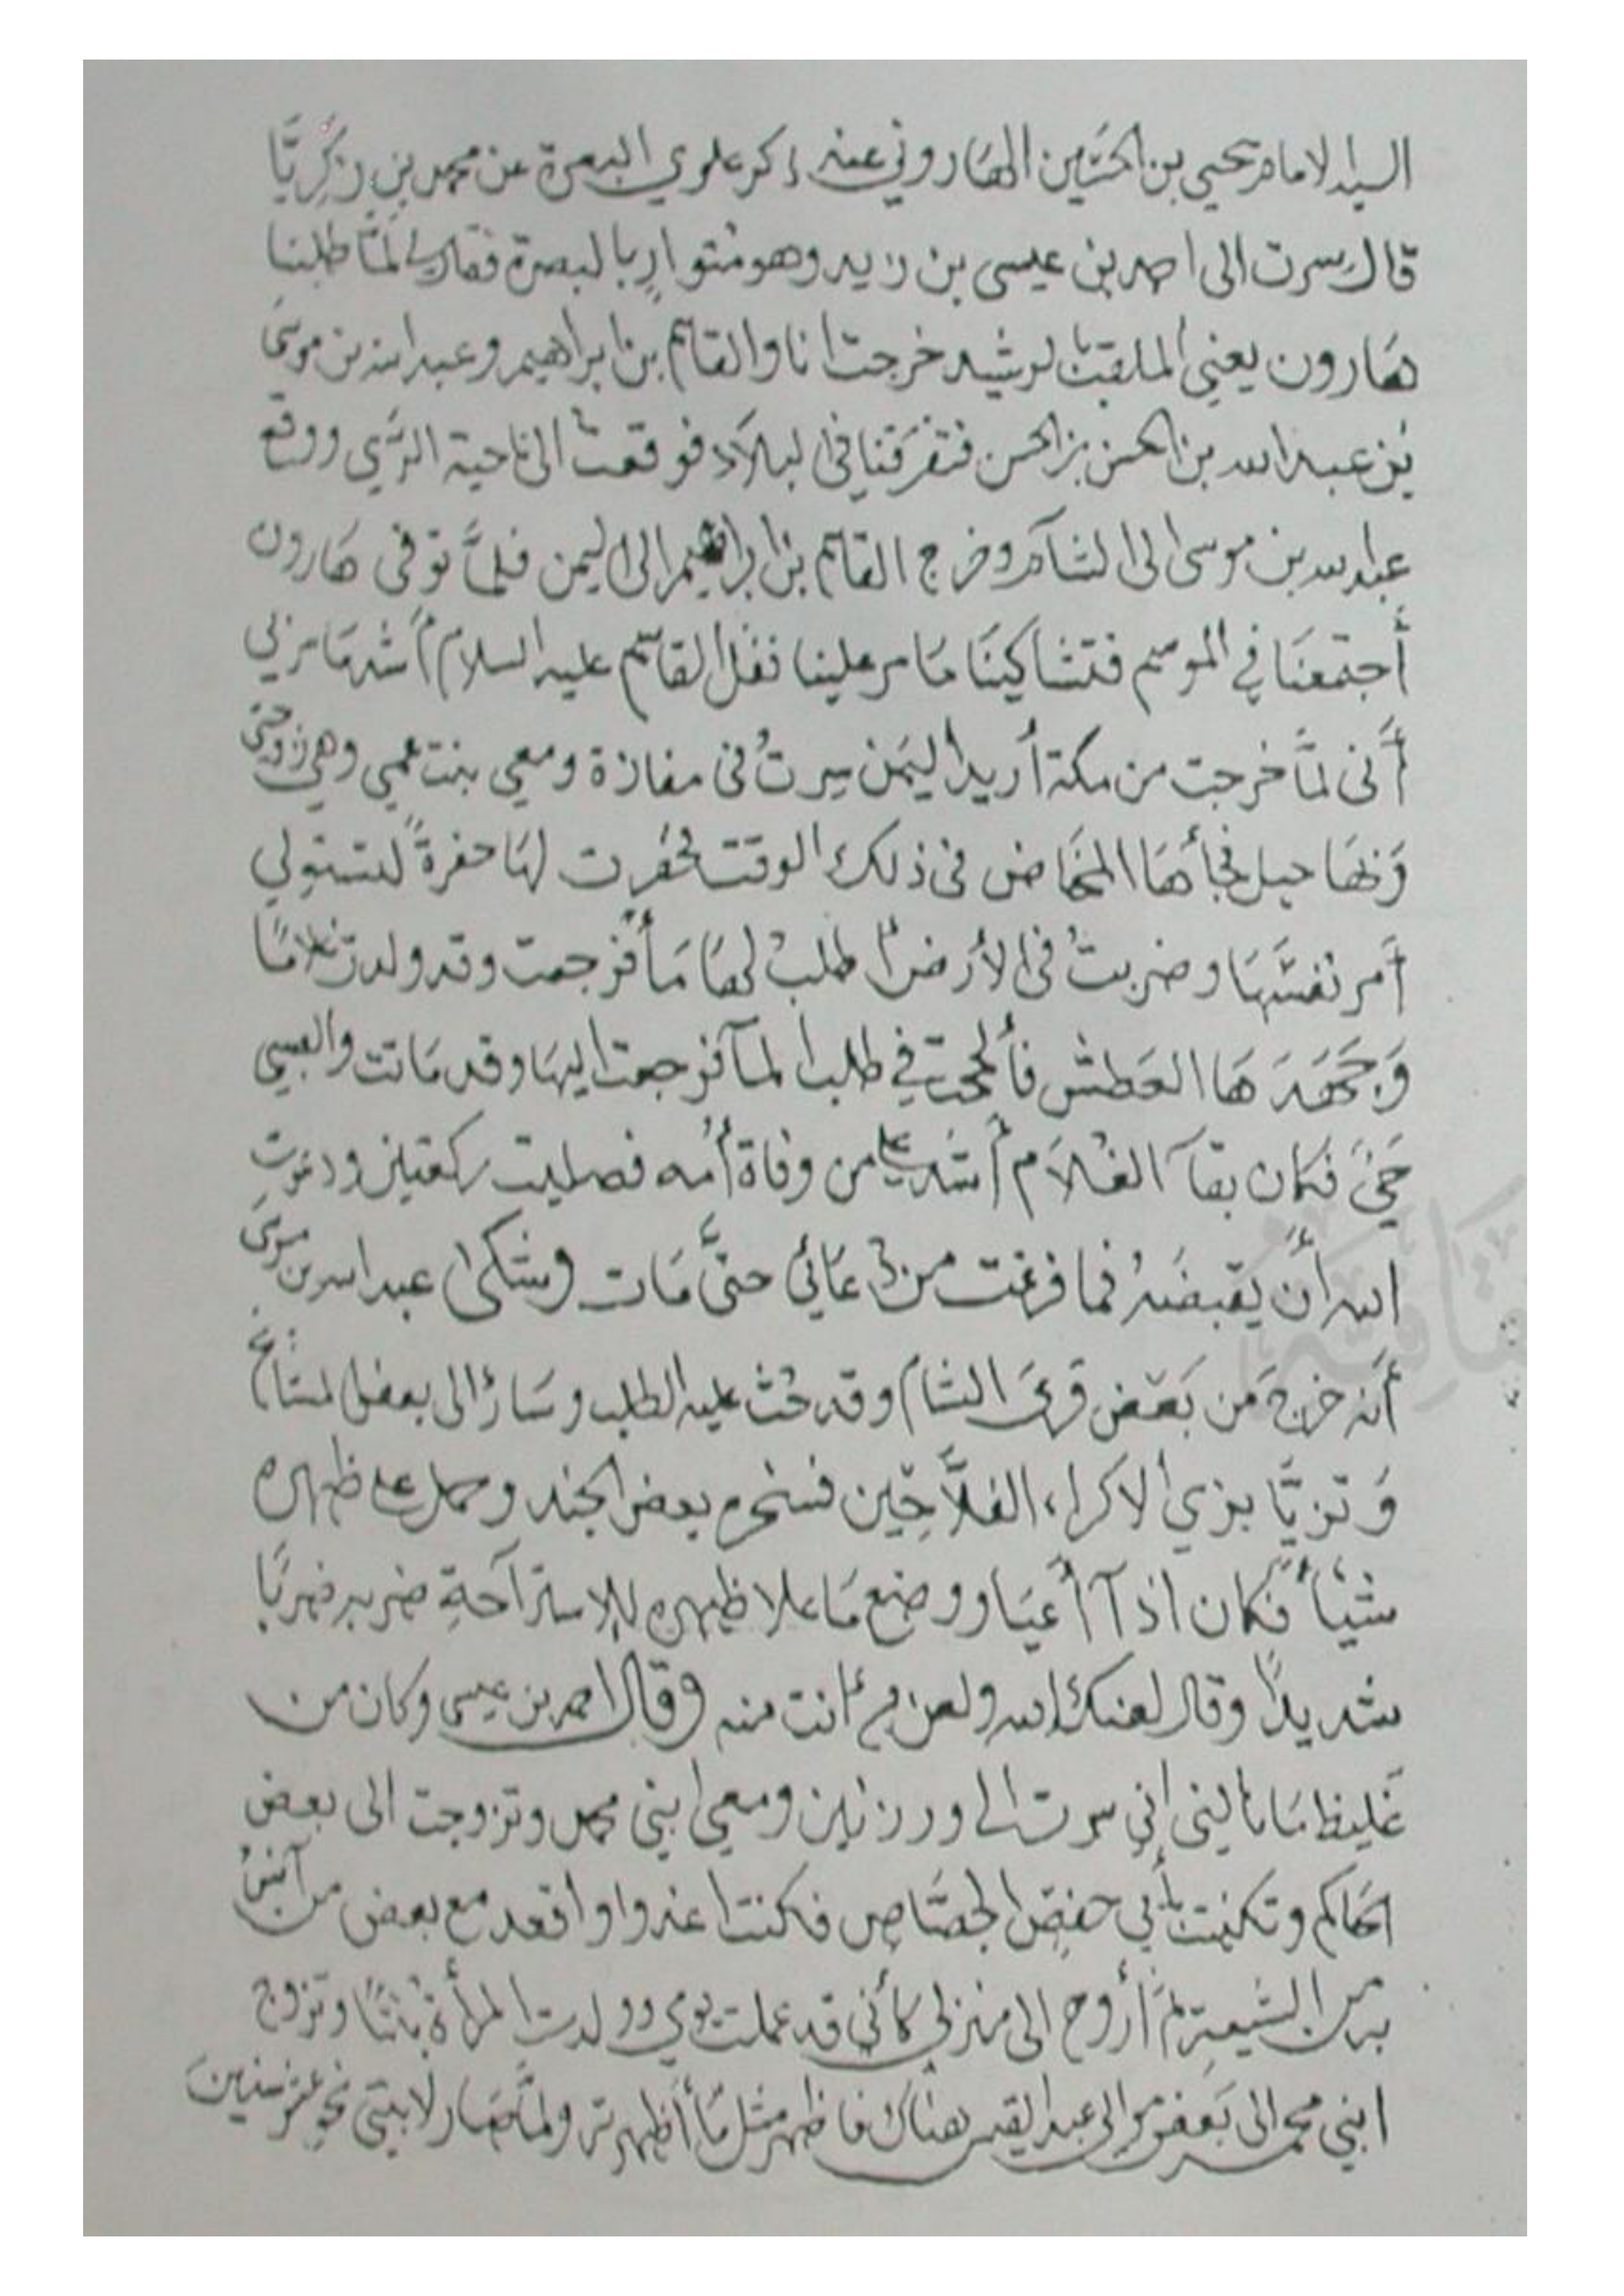 السيد الامام يحيى بن الحسين الهاروني عنه ذكر علوي البصرة عن محمد بن زكريَّا
قال سرت الى احمد بن عيسى بن زيد وهو متوارٍ بالبصرة فقال لي لمَّا طلبنا
هَارون يعني الملقب بالرشيد خرجت انا والقاسم بن ابراهيم وعبد الله بن موسى
بن عبد الله بن الحسن بن الحسن فتفرقنا في البلاد فوقعت الى ناحية الرَّي ووقع
عبد الله بن موسى الى الشام وخرج القاسم بن ابراهيم الى اليمن فلمَّا توفى هَارون
أجتمعنَا في الموسم فتشاكينَا مَا مر علينا فقال القاسم عليه السلام أشد مَا مر بي
أنى لمَّا خرجت من مكة أريد اليَمَن سِرتُ فى مفازة ومعي بنت عمي وهي زوجتى
وَبهَا حبل فجأهَا المخَاض فى ذلك الوقت فحفرت لهَا حفرةً لتتولى
أمر نفسهَا وضربتُ فى الأرض اطلب لهَا مَأ فرجعت وقد ولدت غلامًا
وَجَهَدَهَا العَطش فألححت في طلب المآ فرجعت اليهَا وقد مَاتت والصبي
حَيٌّ فكان بقآ الغُلاَم أشد علي من وفاة أمه فصليت ركعتين ودعوت
الله أن يقبضَهُ فما فرغت من دُعَائي حتَّى مَات وشكى عبد الله بن موسى
أنه خرجَ من بَعض قرى الشام وقد حُثَّ عليه الطلب وسَارَ الى بعض المسَالح
وَتزيَّا بزي الاكراء الفلاَّحِين فسخره بعض الجند وحمل على ظهره
شيئاً فَكان اذآ أعيَا ووضع مَا علا ظهره للاستراحةِ ضربه ضربًا
شديداً وقال لعنك الله ولعن من انت منه وقال احمد بن عيسى وكان من
غليظ مَا نالني اني سرت الى ورزنين ومعي ابني محمد وتزوجت الى بعض
الحَاكم وتكنيت بأبي حفصٍ الجصَّاصِ فكنت اغدوا واقعد مع بعض من آنسُ
به من الشيعةِ ثم أروح الى منزلي كأني قد عملت يومي وولدت المرأة بنتًا وتزوج
ابني محمد الى بَعض موالى عبد القيس هناك فاظهر مثل مَا أظهرته ولمَّا صَار لابنتي نحو عشر سنين